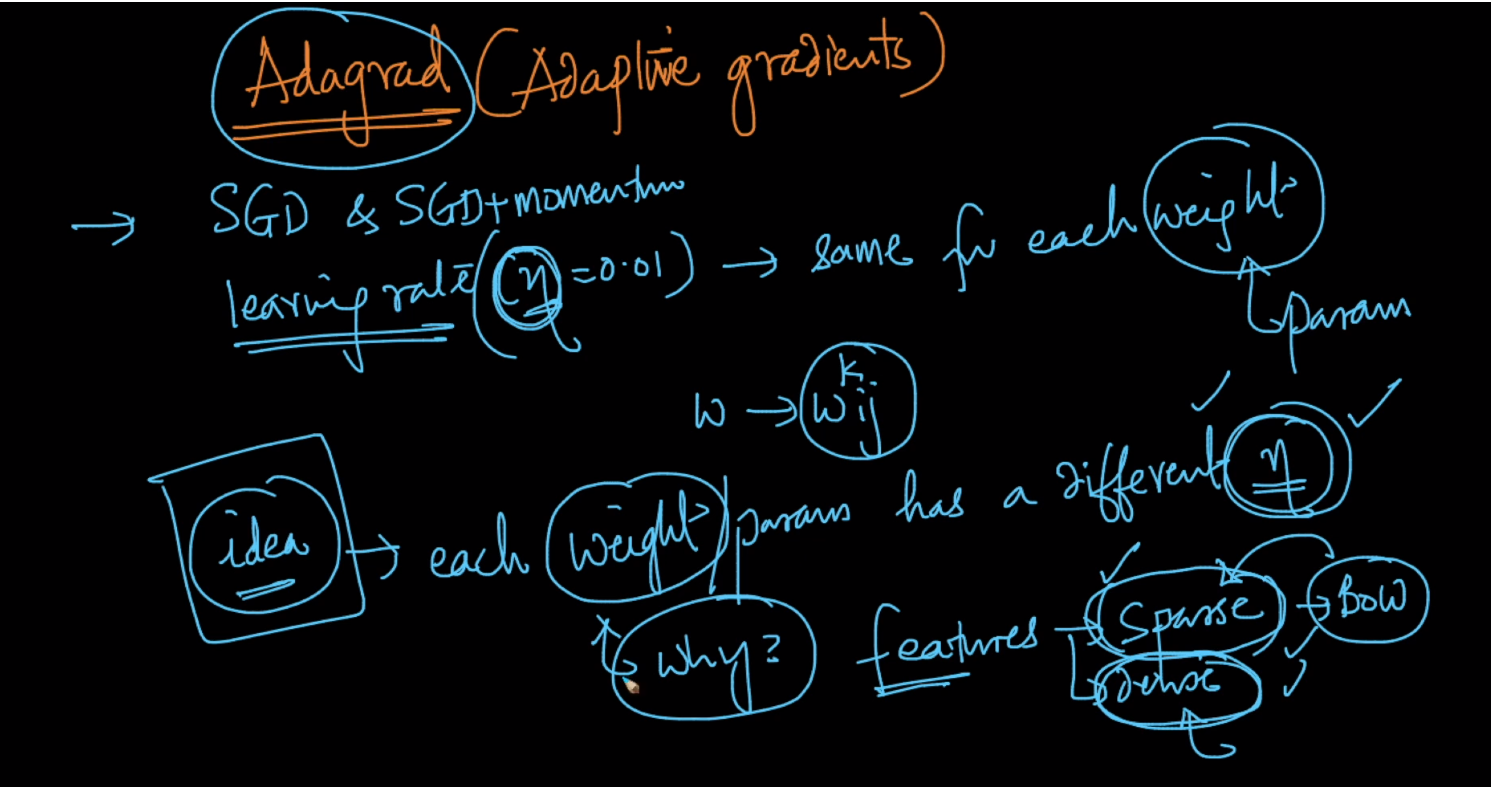 Adagrad (Adaptive gradients)
→ SGD & SGD+momentum
learning rate (η = 0.01) → same for each weight
params
w → w^k_ij
idea → each weight | params has a different η
why? features → sparse → BOW
dense